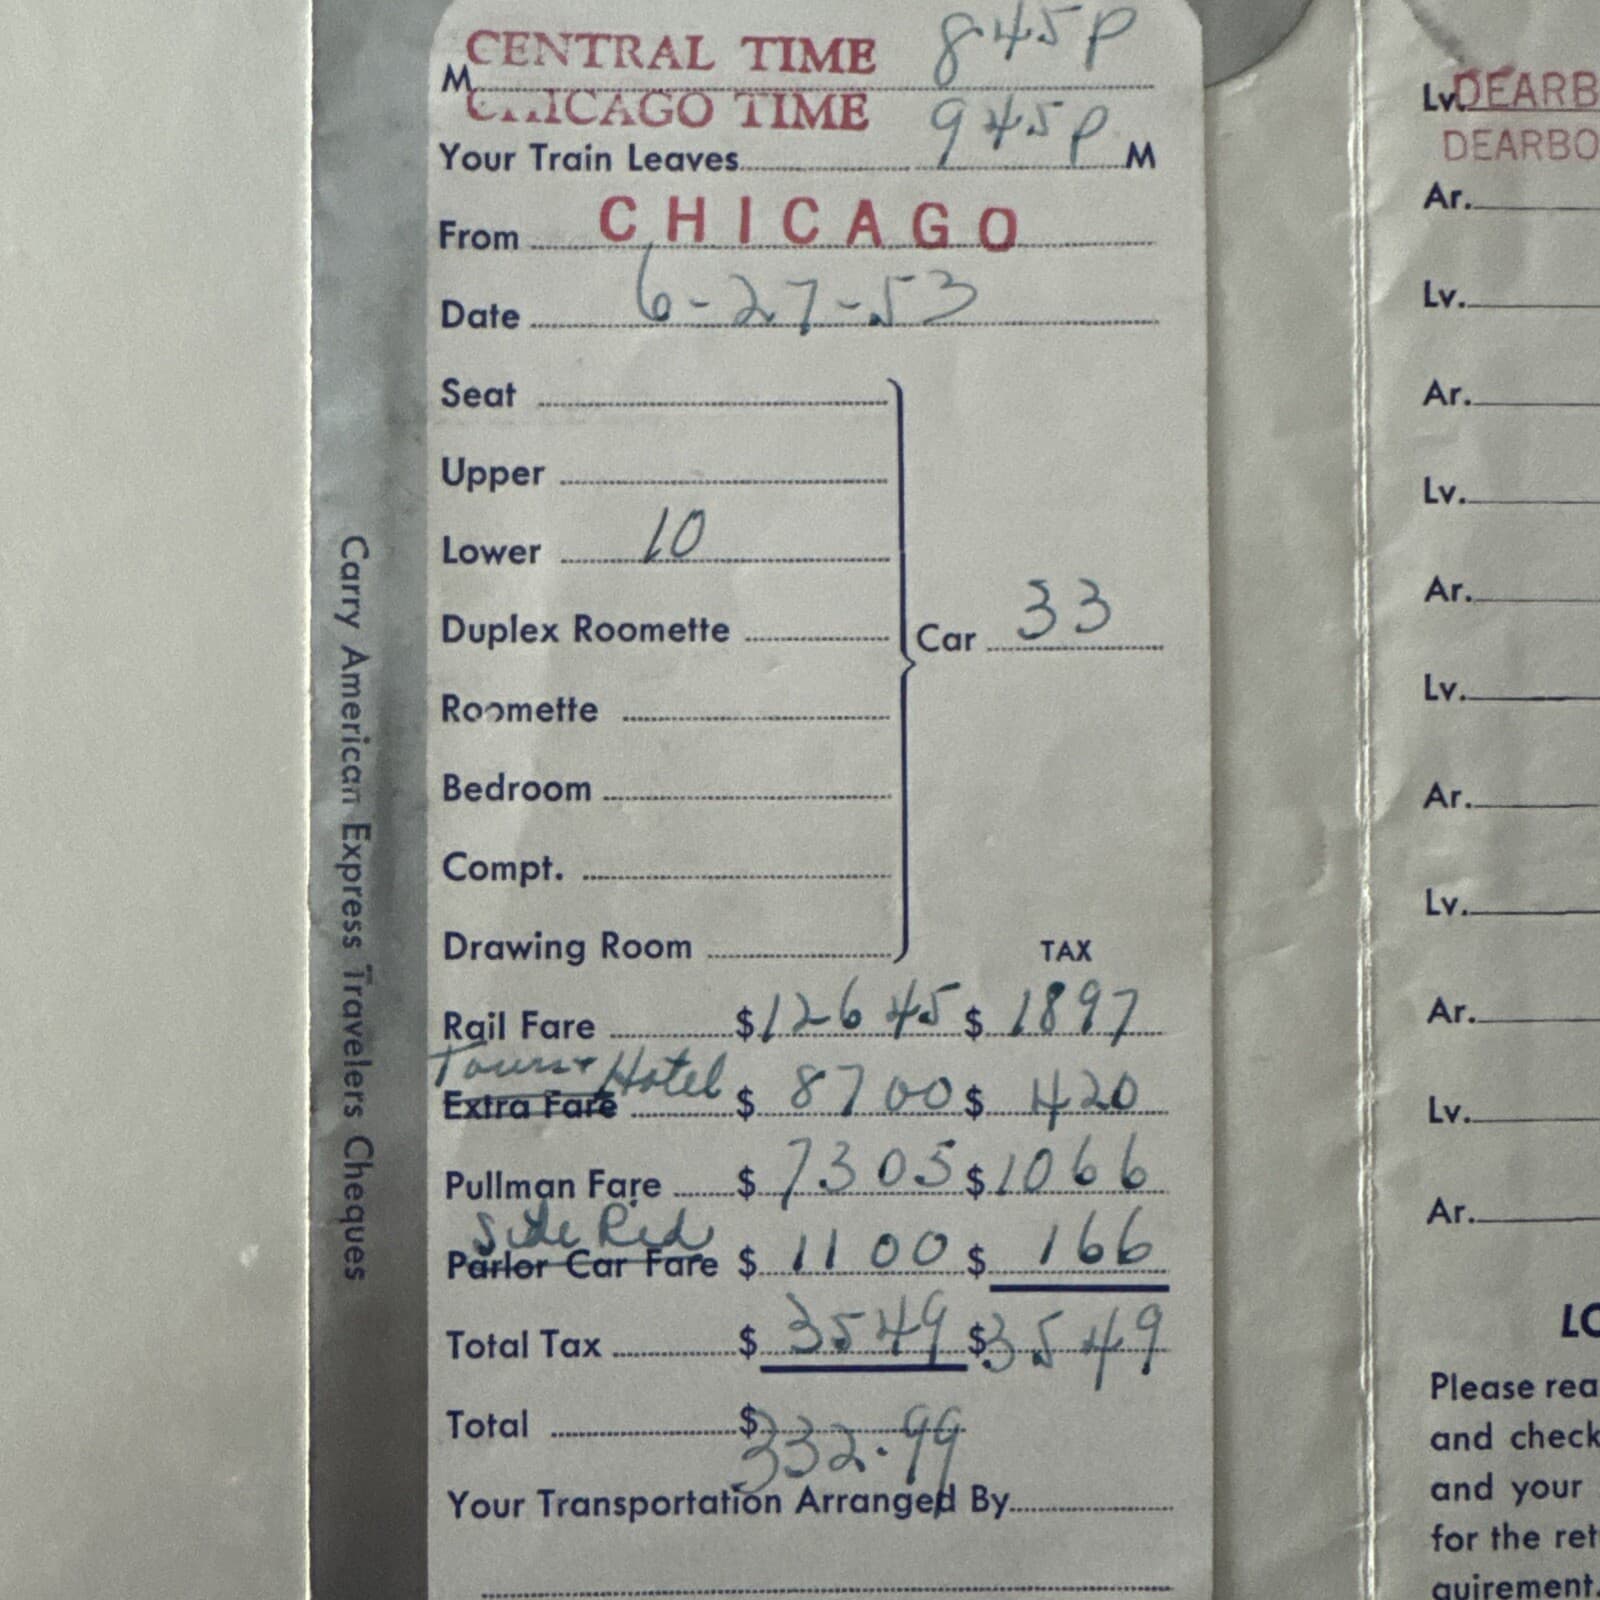 CENTRAL TIME 845P
M
CHICAGO TIME 945P
Your Train Leaves M
From CHICAGO
Date 6-27-53
Seat
Upper
Lower 10
Duplex Roomette
Car 33
Roomette
Bedroom
Compt.
Drawing Room
TAX
Rail Fare $126 45 $ 18 97
Tour + Hotel
Extra Fare $ 87 00 $ 4 20
Pullman Fare $ 73 05 $ 10 66
Side Rid
Parlor Car Fare $ 11 00 $ 1 66
Total Tax $ 35 49 $ 35 49
Total $ 332.99
Your Transportation Arranged By
Carry American Express Travelers Cheques
Lv. DEARB
DEARBO
Ar.
Lv.
Ar.
Lv.
Ar.
Lv.
Ar.
Lv.
Ar.
Lv.
Ar.
LO
Please rea
and check
and your
for the ret
quirement.